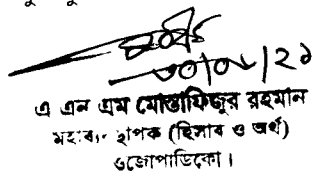 ৩০/০৮/২১
এ এন এম মোস্তাফিজুর রহমান
মহাব্যবস্থাপক (হিসাব ও অর্থ)
ওজোপাডিকো।